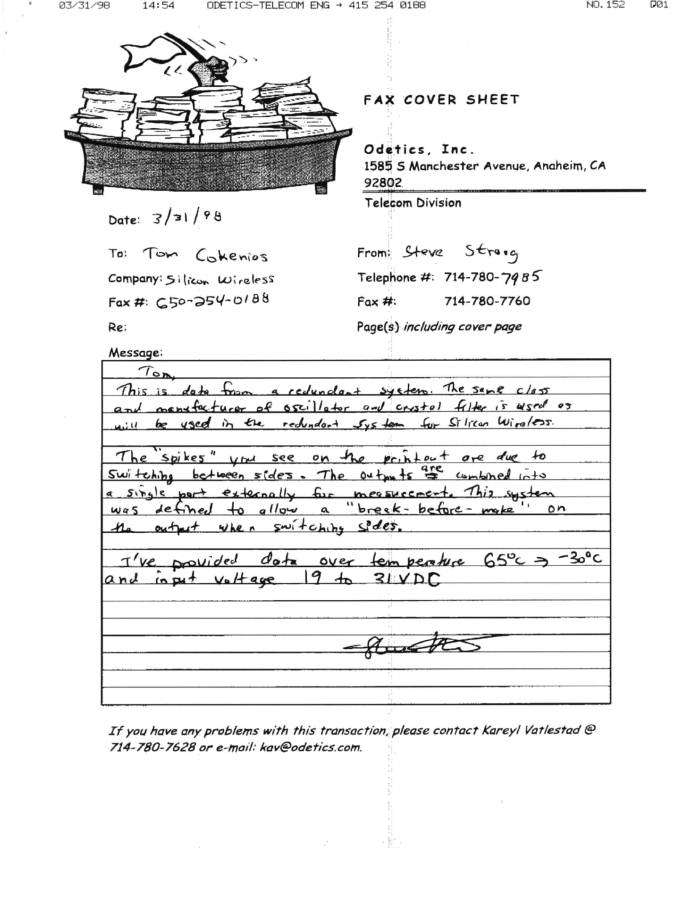 03/31/98 14:54 ODETICS-TELECOM ENG → 415 254 0188 NO.152 D01
FAX COVER SHEET
Odetics, Inc.
1585 S Manchester Avenue, Anaheim, CA
92802
Telecom Division
Date: 3/31/98
To: Tom Cokenios
From: Steve Strong
Company: Silicon Wireless
Telephone #: 714-780-7985
Fax #: 650-254-0188
Fax #: 714-780-7760
Re:
Page(s) including cover page
Message:
Tom,
This is data from a redundant system. The same class
and manufacturer of oscillator and crystal filter is used as
will be used in the redundant system for Silicon Wireless.
The "spikes" you see on the printout are due to
switching between sides. The outputs are combined into
a single port externally for measurement. This system
was defined to allow a "break-before-make" on
the output when switching sides.
I've provided data over temperature 65°C → -30°C
and input voltage 19 to 31 VDC
If you have any problems with this transaction, please contact Kareyl Vatlestad @
714-780-7628 or e-mail: kav@odetics.com.